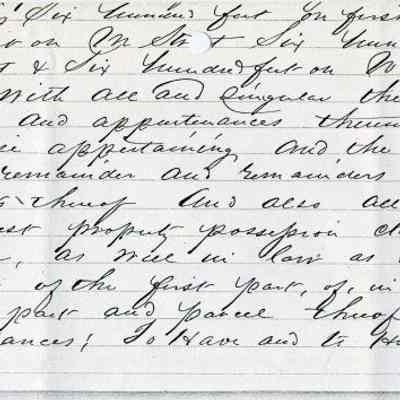 Six hundred feet on first
on M Street Six hun
t & Six hundred feet on M
With all and Singular the
and appurtenances thereu
appertaining and the
remainder and remainders
thereof And also all
est property possesion cl
, as well in law as
of the first part, of, in
part and parcel thereof
ances; To Have and to Ho